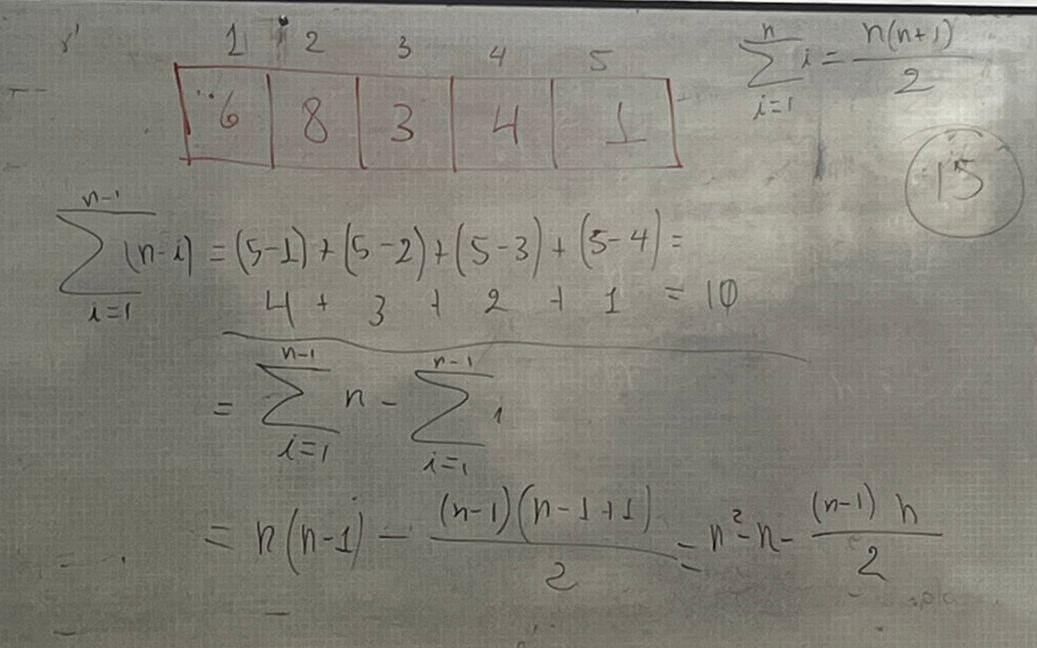 1 2 3 4 5
6 8 3 4 1
n ∑ i=1 i = n(n+1) / 2
15
n-1 ∑ i=1 (n-i) = (5-1) + (5-2) + (5-3) + (5-4) =
4 + 3 + 2 + 1 = 10
= n-1 ∑ i=1 n - n-1 ∑ i=1 i
= n(n-1) - (n-1)(n-1+1) / 2 = n² - n - (n-1) n / 2